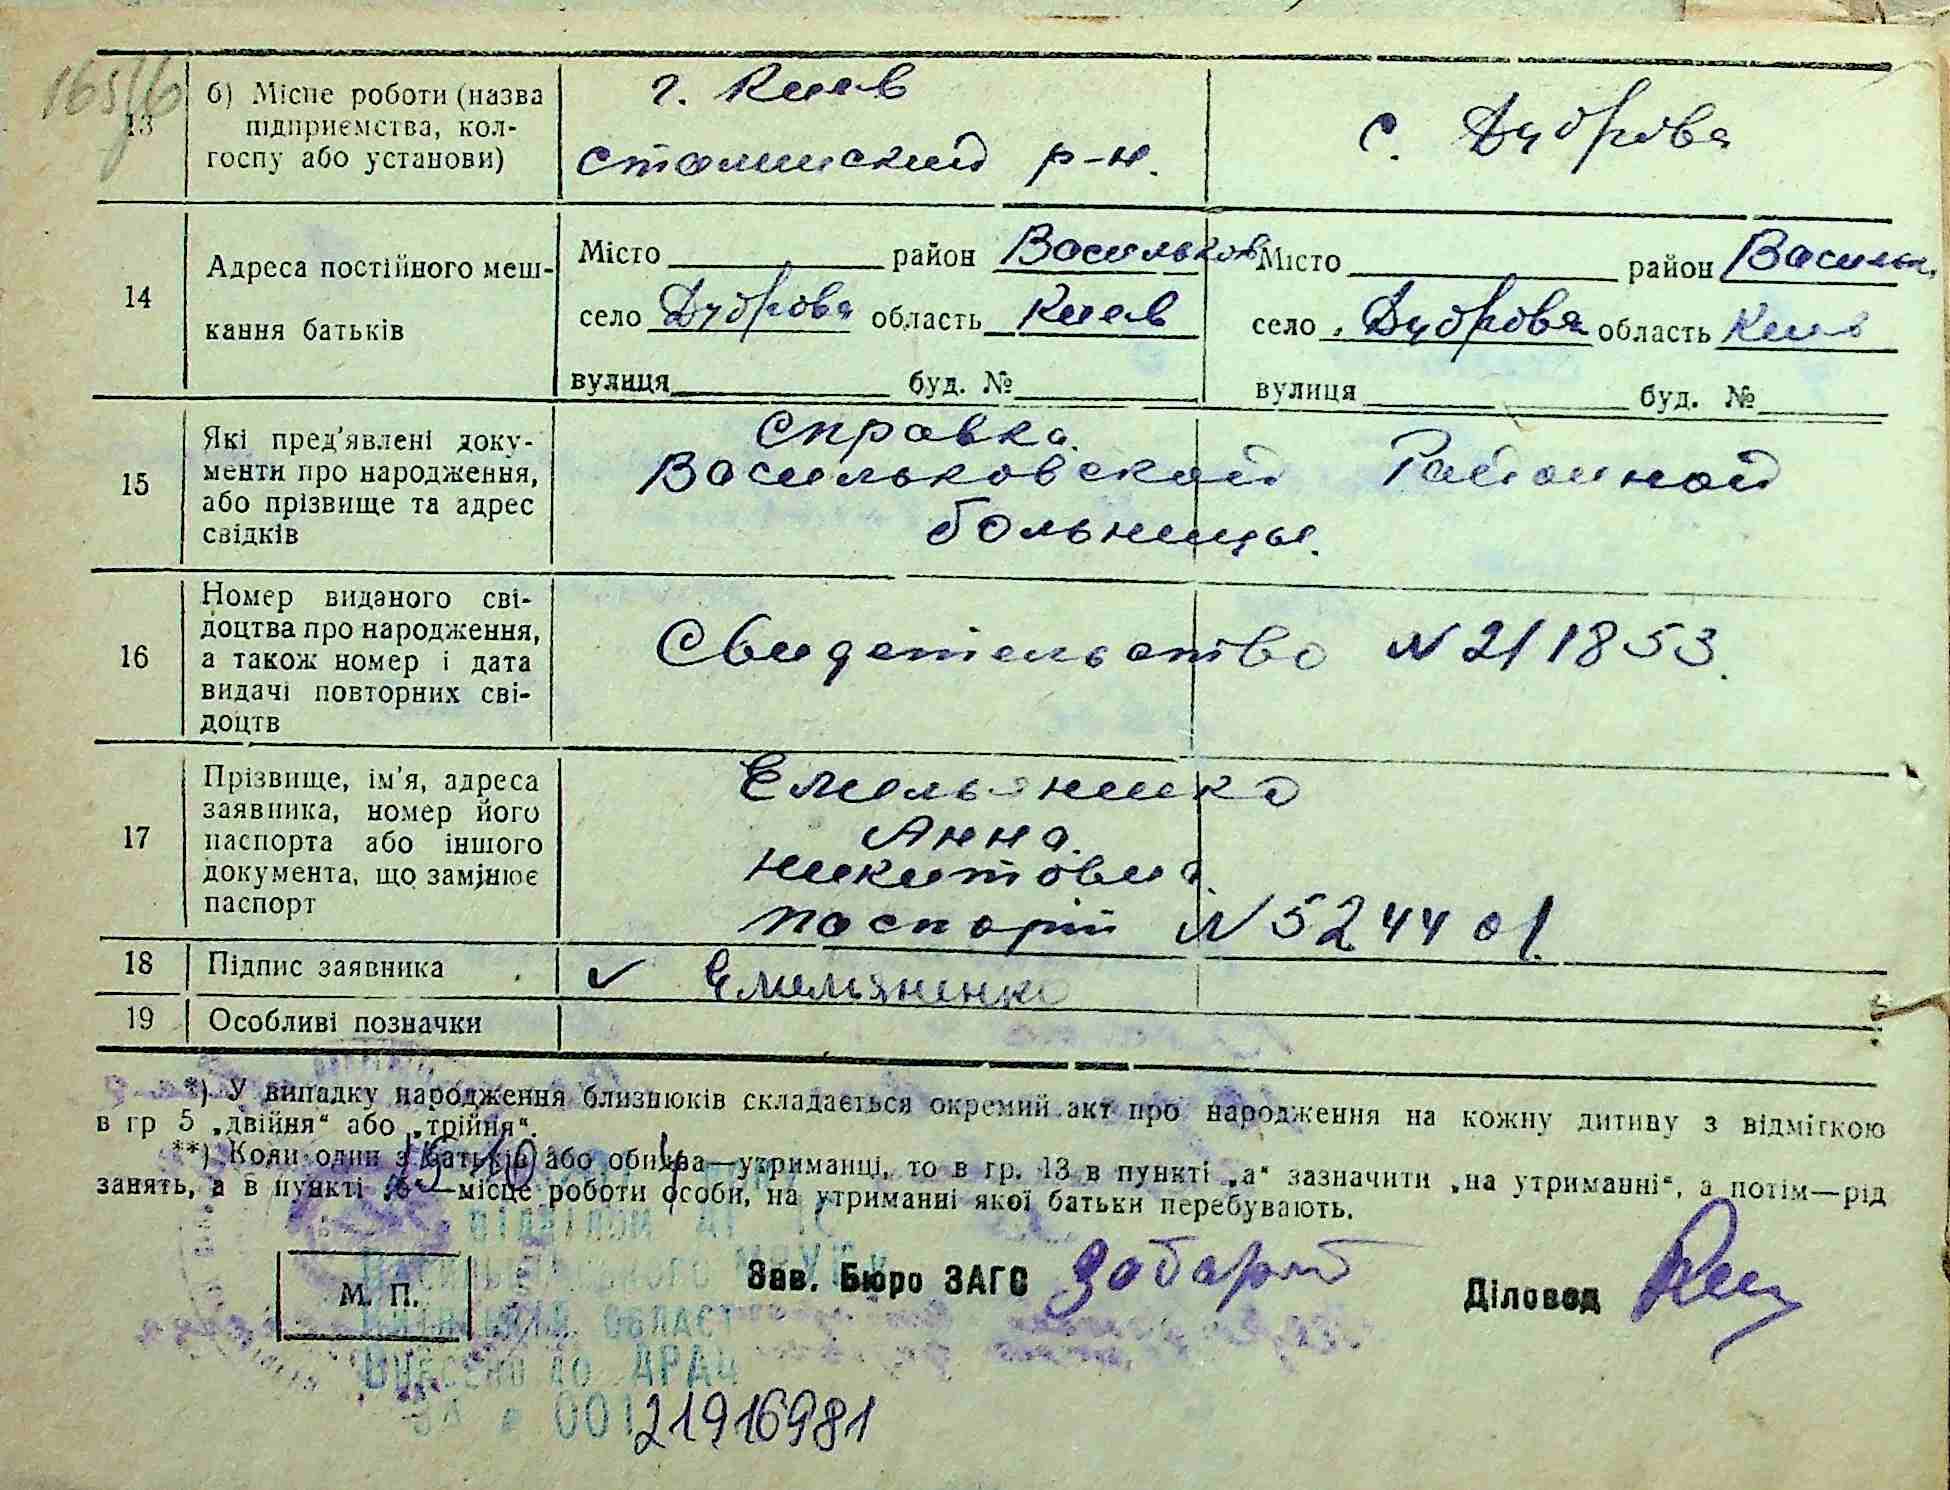 165/6
13
б) Місце роботи (назва
підприємства, кол-
госпу або установи)
г. Киев
Сталинский р-н.
с. Дуброва
14
Адреса постійного меш-
кання батьків
Місто район Васильков
село Дуброва область Киев
вулиця буд. №
Місто район Васильк.
село Дуброва область Киев
вулиця буд. №
15
Які пред'явлені доку-
менти про народження,
або прізвище та адрес
свідків
Справка
Васильковской Районной
больницы.
16
Номер виданого сві-
доцтва про народження,
а також номер і дата
видачі повторних сві-
доцтв
Свидетельство N 211853.
17
Прізвище, ім'я, адреса
заявника, номер його
паспорта або іншого
документа, що замінює
паспорт
Емельяненко
Анна
Никитовна
паспорт N 524401.
18
Підпис заявника
Емельяненко
19
Особливі позначки
*) У випадку народження близнюків складається окремий акт про народження на кожну дитину з відміткою
в гр 5 „двійня“ або „трійня“.
**) Коли один з батьків або обидва—утриманці, то в гр. 13 в пункті „а“ зазначити „на утриманні“, а потім—рід
занять, а в пункті „б“—місце роботи особи, на утриманні якої батьки перебувають.
М. П.
Зав. Бюро ЗАГС
Діловод
ОБЛАСТ
ВНЕСЕНО ДО АРАЦ
ЗА № 00121916981